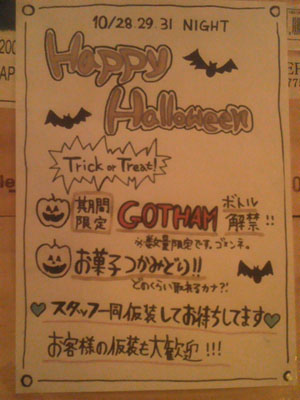 10/28.29.31 NIGHT
Happy
Halloween
Trick or Treat!
期間限定 GOTHAM ボトル解禁!!
※数量限定です。ゴメンネ。
お菓子つかみどり!!
どのくらい取れるカナ?!
スタッフ一同仮装してお待ちしてます
お客様の仮装も大歓迎!!!